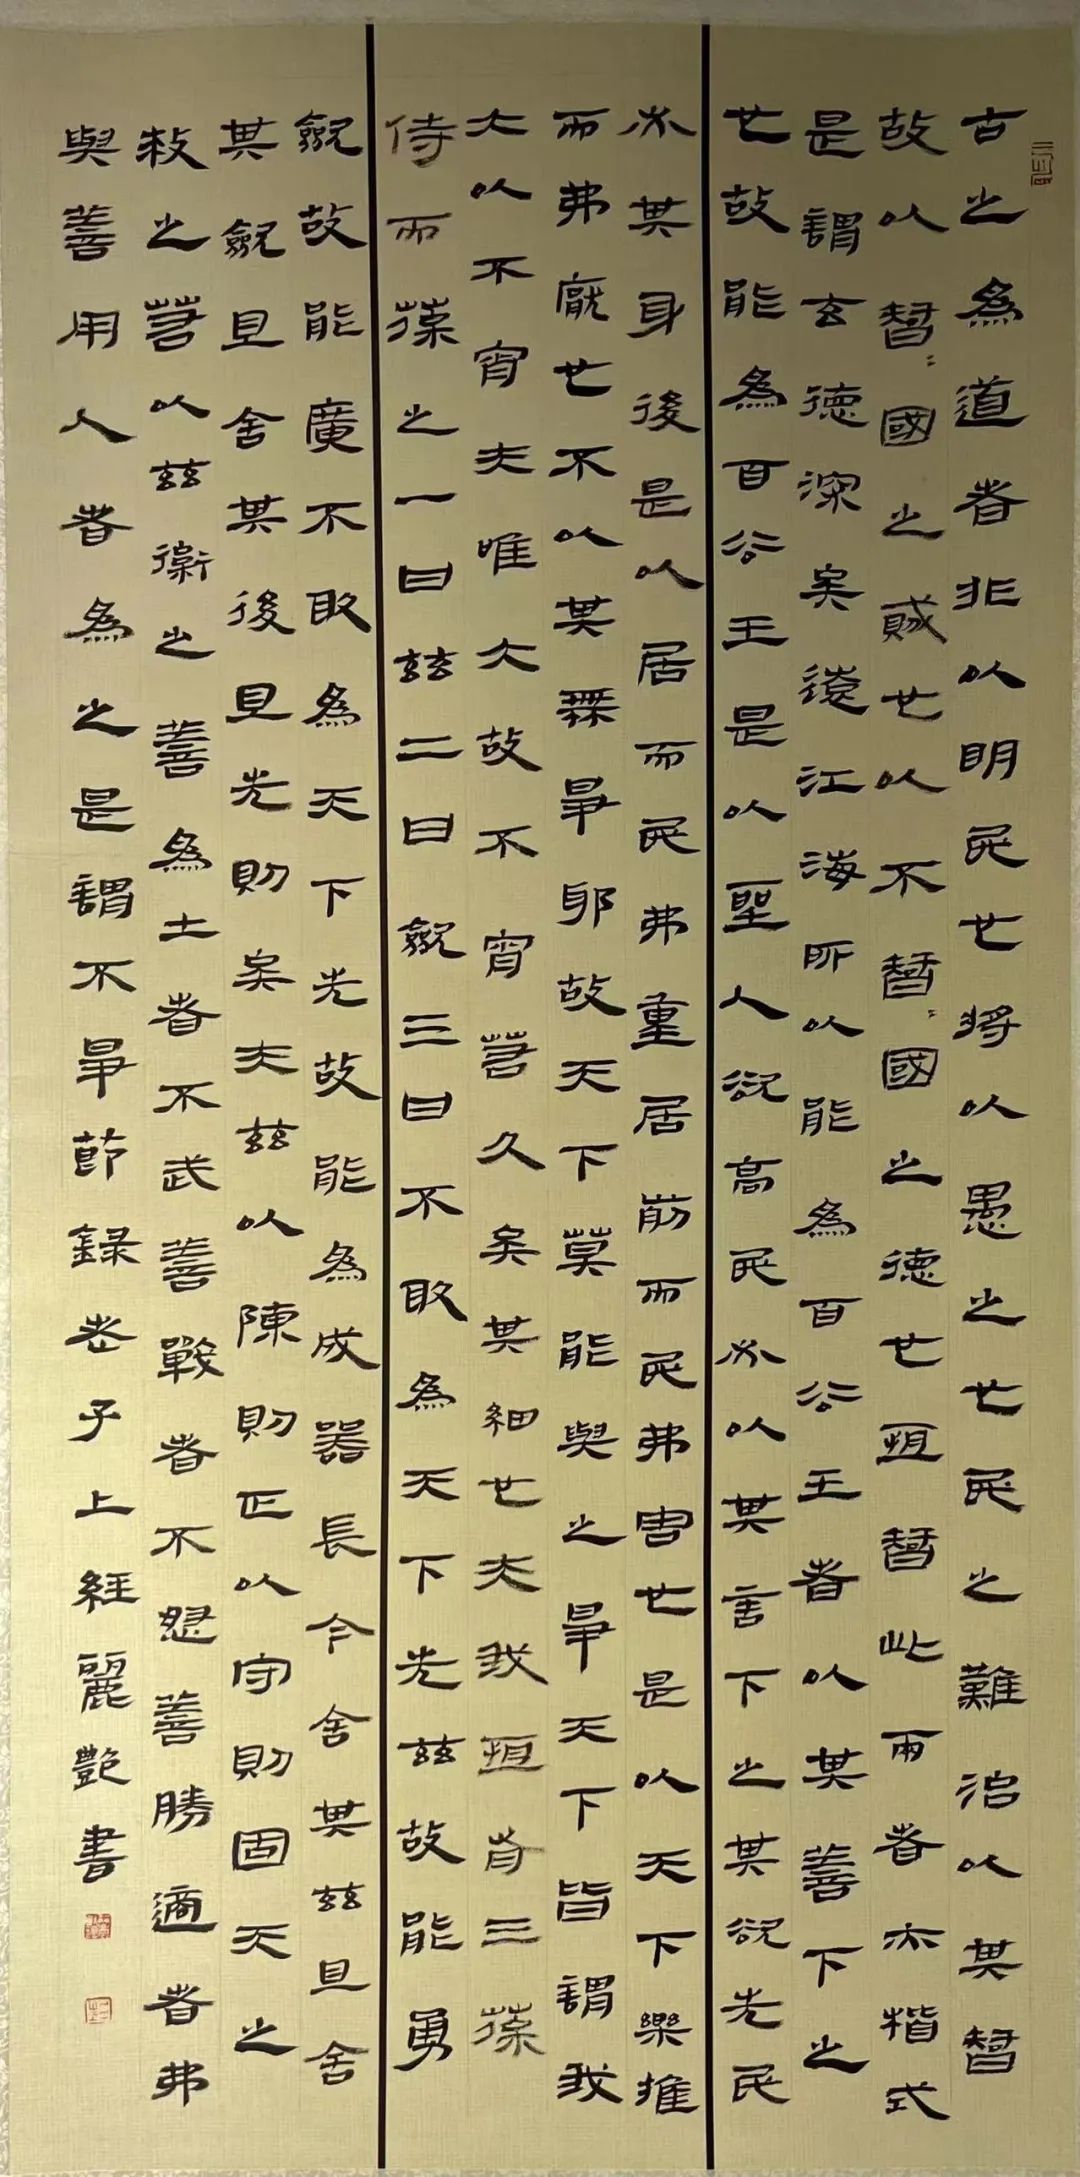 古之為道者非以明民也将以愚之也民之難治以其𣉻
故以𣉻=國之賊也以不𣉻=國之德也恒𣉻此兩者亦楷式
是謂玄德深矣遠江海所以能為百谷王者以其善下之
也故能為百谷王是以聖人欲高民必以其言下之其欲先民
必其身後是以居而民弗重居前而民弗害也是以天下樂推
而弗厭也不以其无爭邪故天下莫能與之爭天下皆謂我
大以不宵夫唯大故不宵若久矣其細也夫我恒有三葆
侍而葆之一曰兹二曰儉三曰不敢為天下先兹故能勇
儉故能廣不敢為天下先故能為成器長今舍其兹且舍
其儉且舍其後且先則矣夫兹以陳則正以守則固天之
救之若以兹衛之善為士者不武善戰者不怒善勝適者弗
與善用人者為之是謂不爭節録老子上經麗艷書